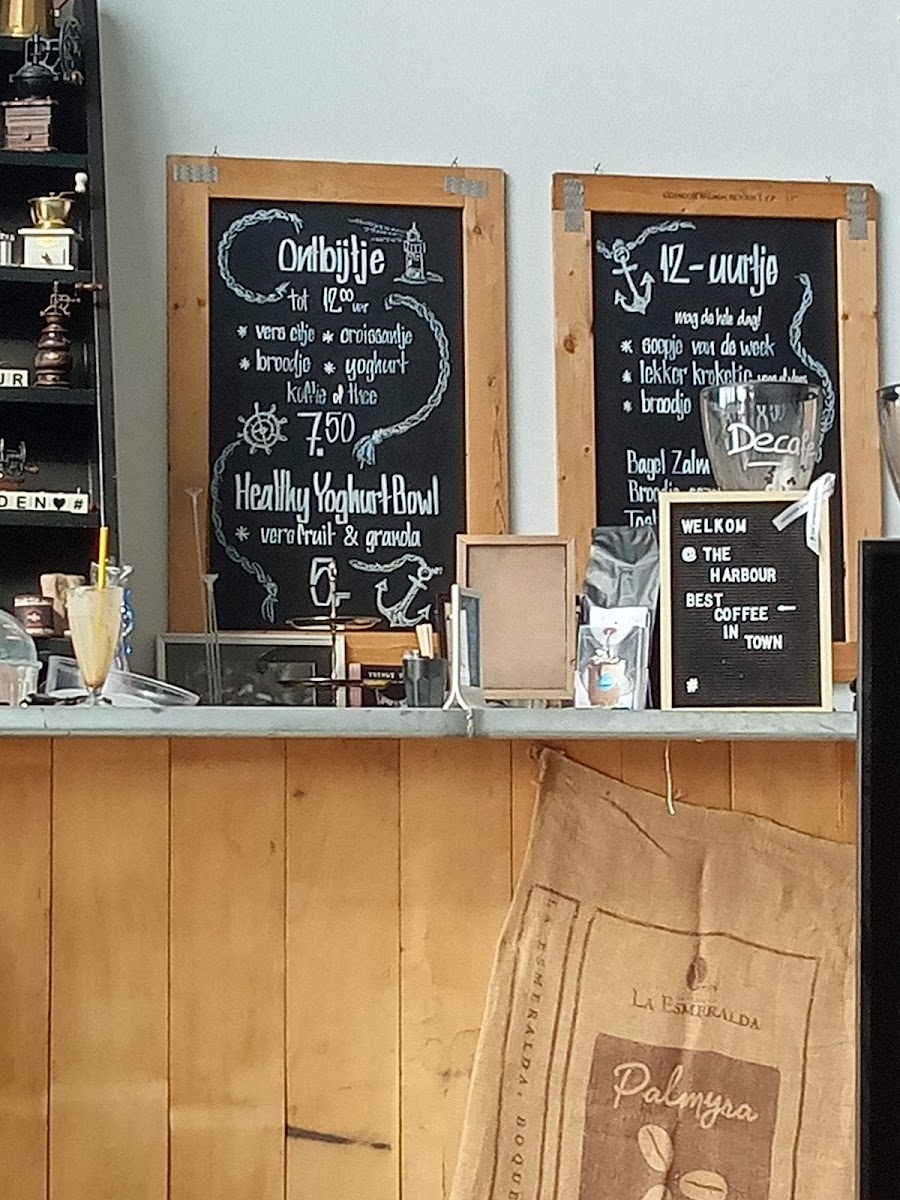 Ontbijtje
tot 12⁰⁰ uur
* vers eitje * croissantje
* broodje * yoghurt
koffie of thee
7.50
Healthy Yoghurt Bowl
* vers fruit & granola
5,-
12-uurtje
mag de hele dag!
* soepje van de week
* lekker kroketje
* broodje
Bagel Zalm
Decafe
WELKOM
@ THE
HARBOUR
BEST
COFFEE
IN
TOWN
#
UR
DEN♥#
LA ESMERALDA
Palmyra
LA ESMERALDA, BOQUE